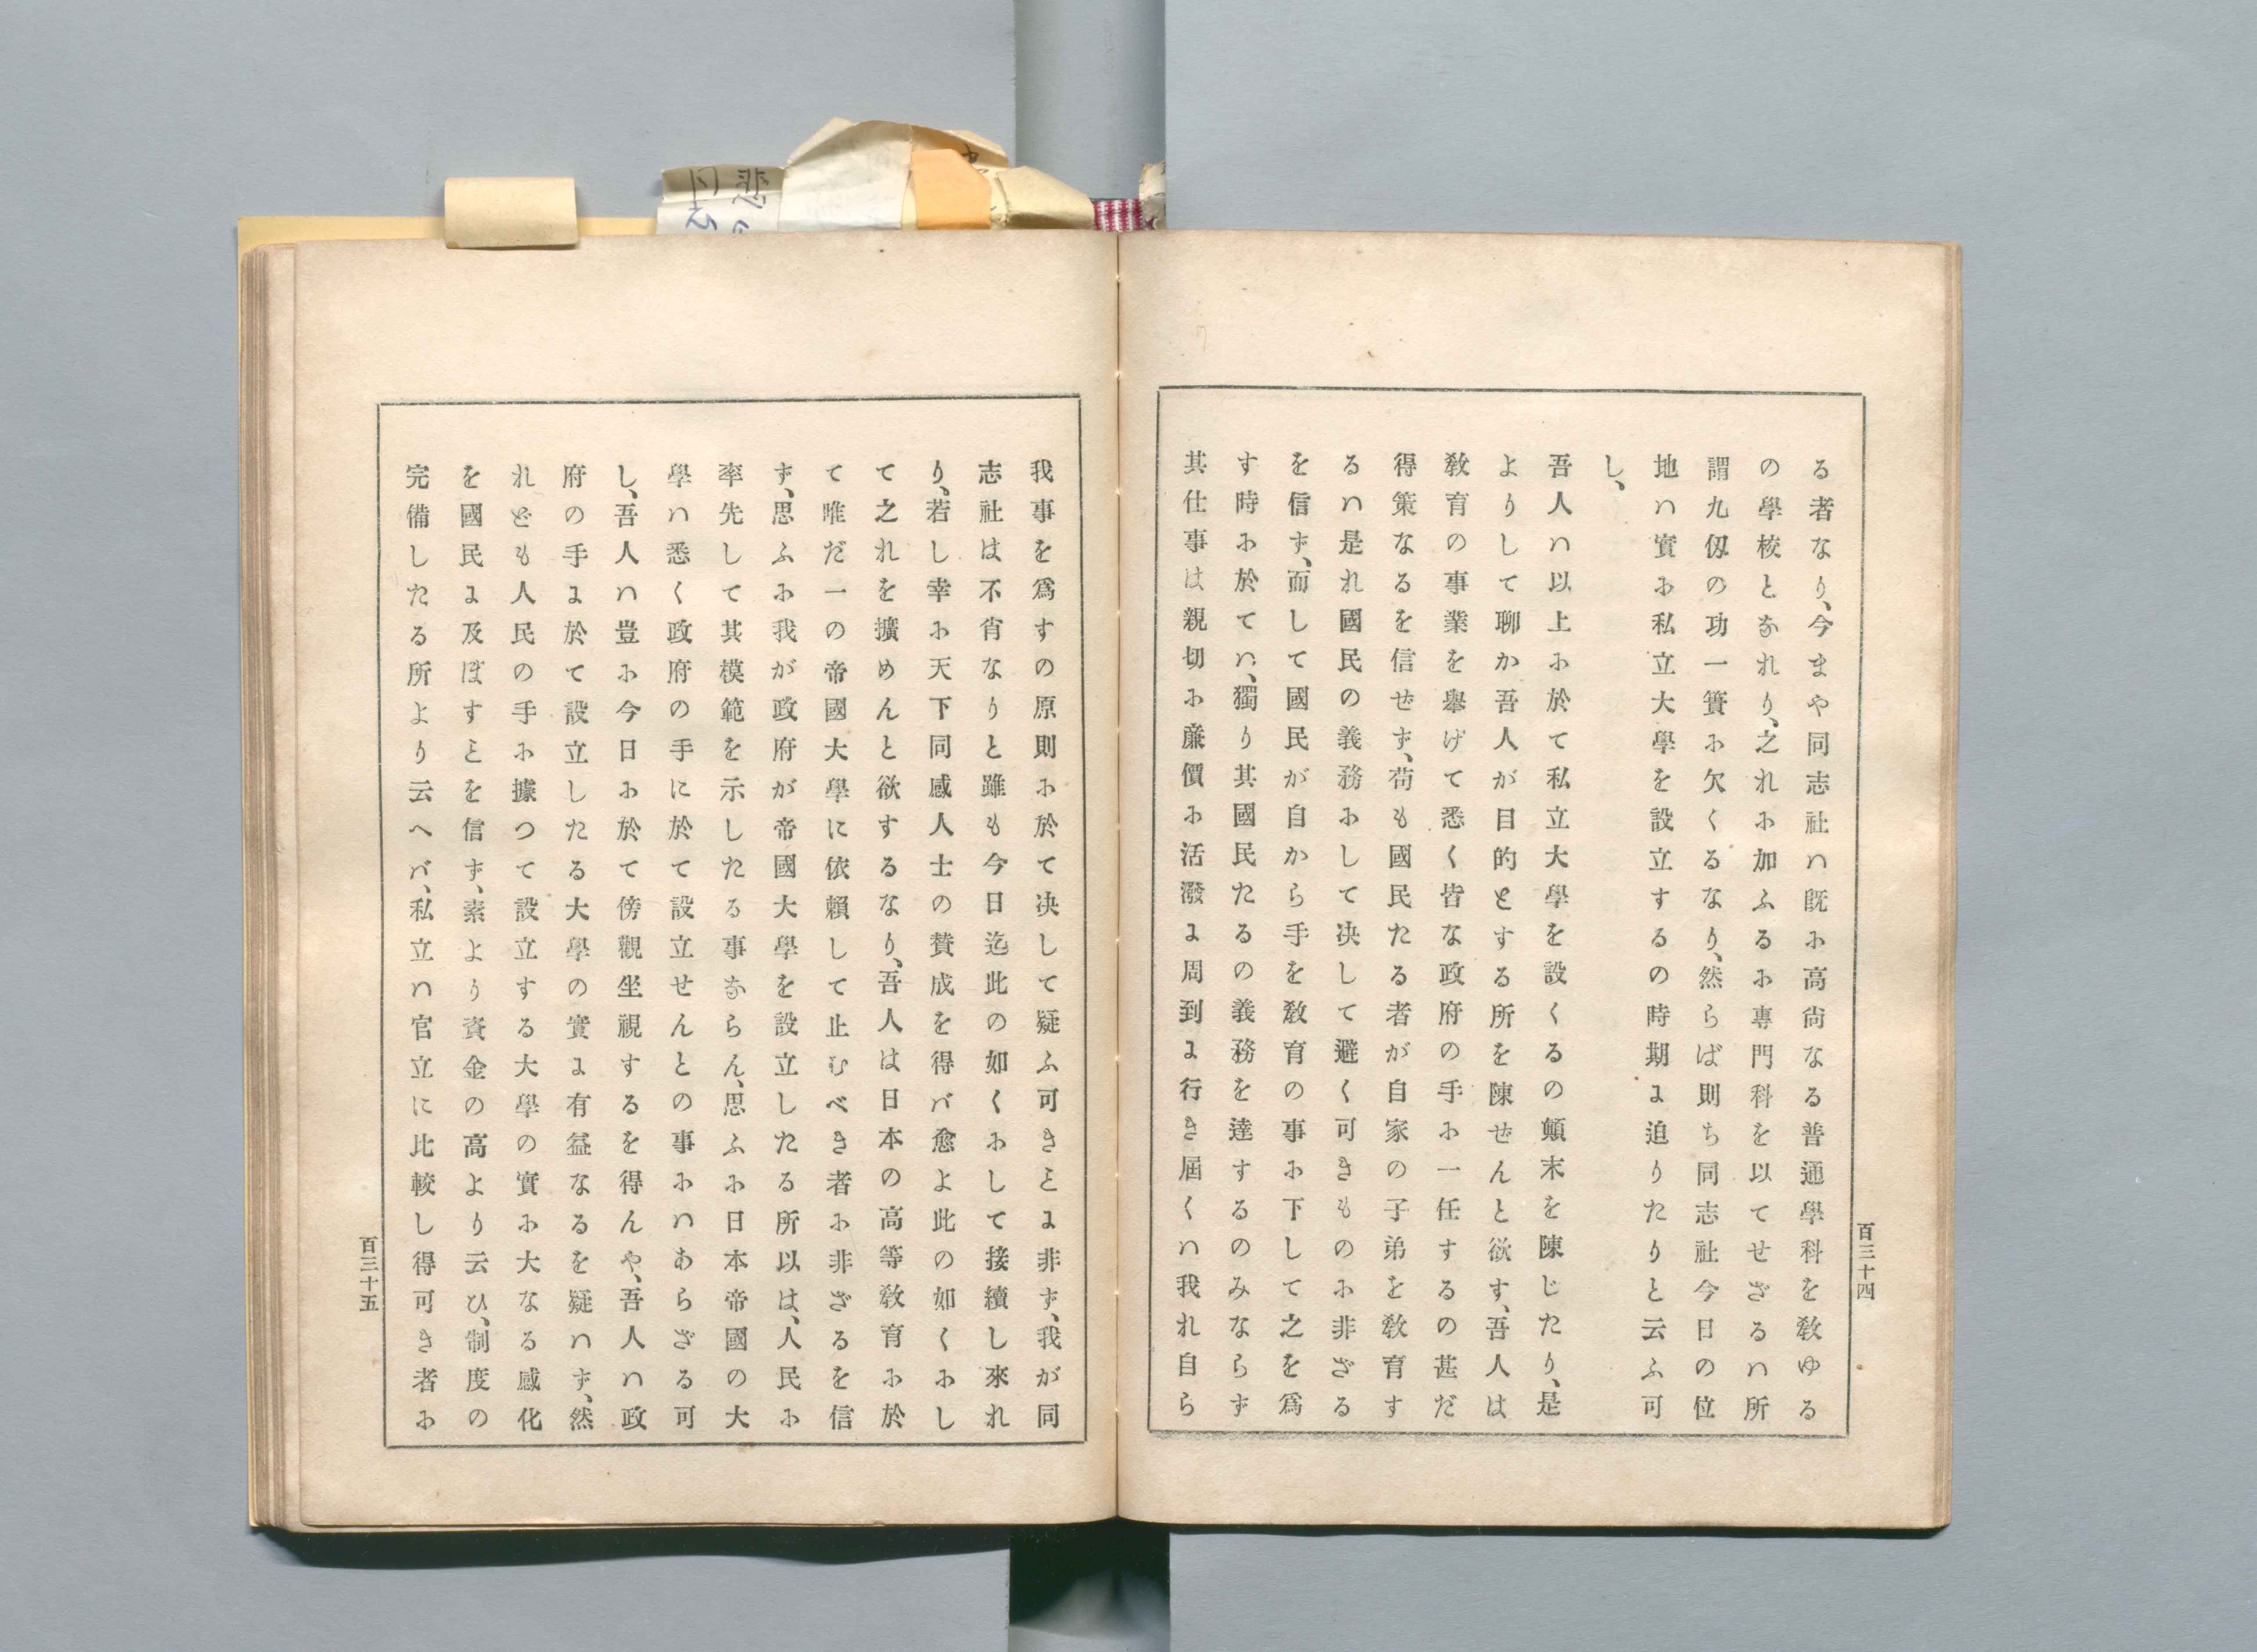 る者なり、今まや同志社ハ既に高尚なる普通學科を教ゆる
の學校となれり、之れに加ふるに専門科を以てせざるハ所
謂九仭の功一簣に欠くるなり、然らば則ち同志社今日の位
地ハ實に私立大學を設立するの時期に迫りたりと云ふ可
し、
吾人ハ以上に於て私立大學を設くるの顛末を陳じたり、是
よりして聊か吾人が目的とする所を陳せんと欲す、吾人は
教育の事業を擧げて悉く皆な政府の手に一任するの甚だ
得策なるを信せず、苟も國民たる者が自家の子弟を教育す
るハ是れ國民の義務にして决して避く可きものに非ざる
を信ず、而して國民が自から手を教育の事に下して之を爲
す時に於てハ、獨り其國民たるの義務を達するのみならず
其仕事は親切に廉價に活潑に周到に行き屆くハ我れ自ら
百三十四
我事を爲すの原則に於て决して疑ふ可きとに非ず、我が同
志社は不肖なりと雖も今日迄此の如くにして接續し來れ
り、若し幸に天下同感人士の賛成を得バ愈よ此の如くにし
て之れを擴めんと欲するなり、吾人は日本の高等教育に於
て唯だ一の帝國大學に依頼して止むべき者に非ざるを信
ず、思ふに我が政府が帝國大學を設立したる所以は、人民に
率先して其模範を示したる事ならん、思ふに日本帝國の大
學ハ悉く政府の手に於て設立せんとの事にハあらざる可
し、吾人ハ豈に今日に於て傍觀坐視するを得んや、吾人ハ政
府の手に於て設立したる大學の實に有益なるを疑ハず、然
れども人民の手に據つて設立する大學の實に大なる感化
を國民に及ぼすとを信ず、素より資金の高より云ひ、制度の
完備したる所より云へバ、私立ハ官立に比較し得可き者に
百三十五